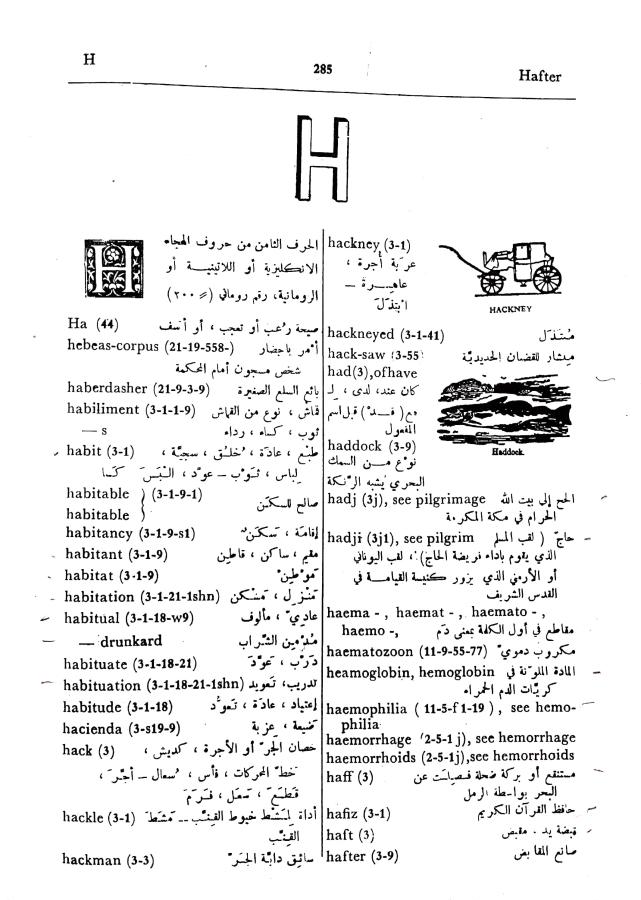 H
285
Hafter
H
H
الحرف الثامن من حروف الهجاء
الانكليزية أو اللاتينية أو
الرومانية، رقم روماني (= ٢٠٠)
Ha (44) صيحة رعب أو تعجب ، أو أسف
hebeas-corpus (21-19-558-) أمر باحضار
شخص مسجون أمام المحكمة
haberdasher (21-9-3-9) بائع السلع الصغيرة
habiliment (3-1-1-9) قماش ، نوع من القماش
— s ثوب ، كساء ، رداء
habit (3-1) طبع ، عادة ، خلق ، سجية ،
لباس ، ثوب – عود ، البس كسا
habitable } (3-1-9-1)
صالح للسكن
habitable
habitancy (3-1-9-s1) إقامة ، سكن
habitant (3-1-9) مقيم ، ساكن ، قاطن
habitat (3-1-9) موطن
habitation (3-1-21-1shn) منزل ، مسكن
habitual (3-1-18-w9) عادي ، مألوف
— drunkard مدمن الشراب
habituate (3-1-18-21) درب ، عود
habituation (3-1-18-21-1shn) تدريب، تعويد
habitude (3-1-18) إعتياد ، عادة ، تعود
hacienda (3-s19-9) ضيعة ، عزبة
hack (3) حصان الجر أو الأجرة ، كديش ،
خط المحركات ، فأس ، سعال – أجر ،
قطع ، سعل ، فرم
hackle (3-1) أداة لمشط خيوط القنب – مشط
القنب
hackman (3-3) سائق دابة الجر
hackney (3-1)
عربة أجرة ،
عاهرة –
ابتذل
HACKNEY
hackneyed (3-1-41) مبتذل
hack-saw (3-55) ميشار للقضبان الحديدية
had(3),ofhave
كان عند، لدى ، لـ
مع( قد) قبل اسم
المفعول
haddock (3-9)
نوع من السمك
البحري يشبه الرنكة
Haddock
hadj (3j), see pilgrimage الحج إلى بيت الله
الحرام في مكة المكرمة
hadji (3j1), see pilgrim حاج ( لقب المسلم
الذي يقوم باداء فريضة الحاج)، لقب اليوناني
أو الأرمني الذي يزور كنيسة القيامة في
القدس الشريف
haema - , haemat - , haemato - ,
haemo -, مقاطع في أول الكلمة بمعنى دم
haematozoon (11-9-55-77) مكروب دموي
heamoglobin, hemoglobin المادة الملونة في
كريات الدم الحمراء
haemophilia ( 11-5-f 1-19 ) , see hemo-
philia
haemorrhage (2-5-1j), see hemorrhage
haemorrhoids (2-5-1j),see hemorrhoids
haff (3) مستنقع أو بركة ضحلة فصلت عن
البحر بواسطة الرمل
hafiz (3-1) حافظ القرآن الكريم
haft (3) قبضة يد ، مقبض
hafter (3-9) صانع المقابض